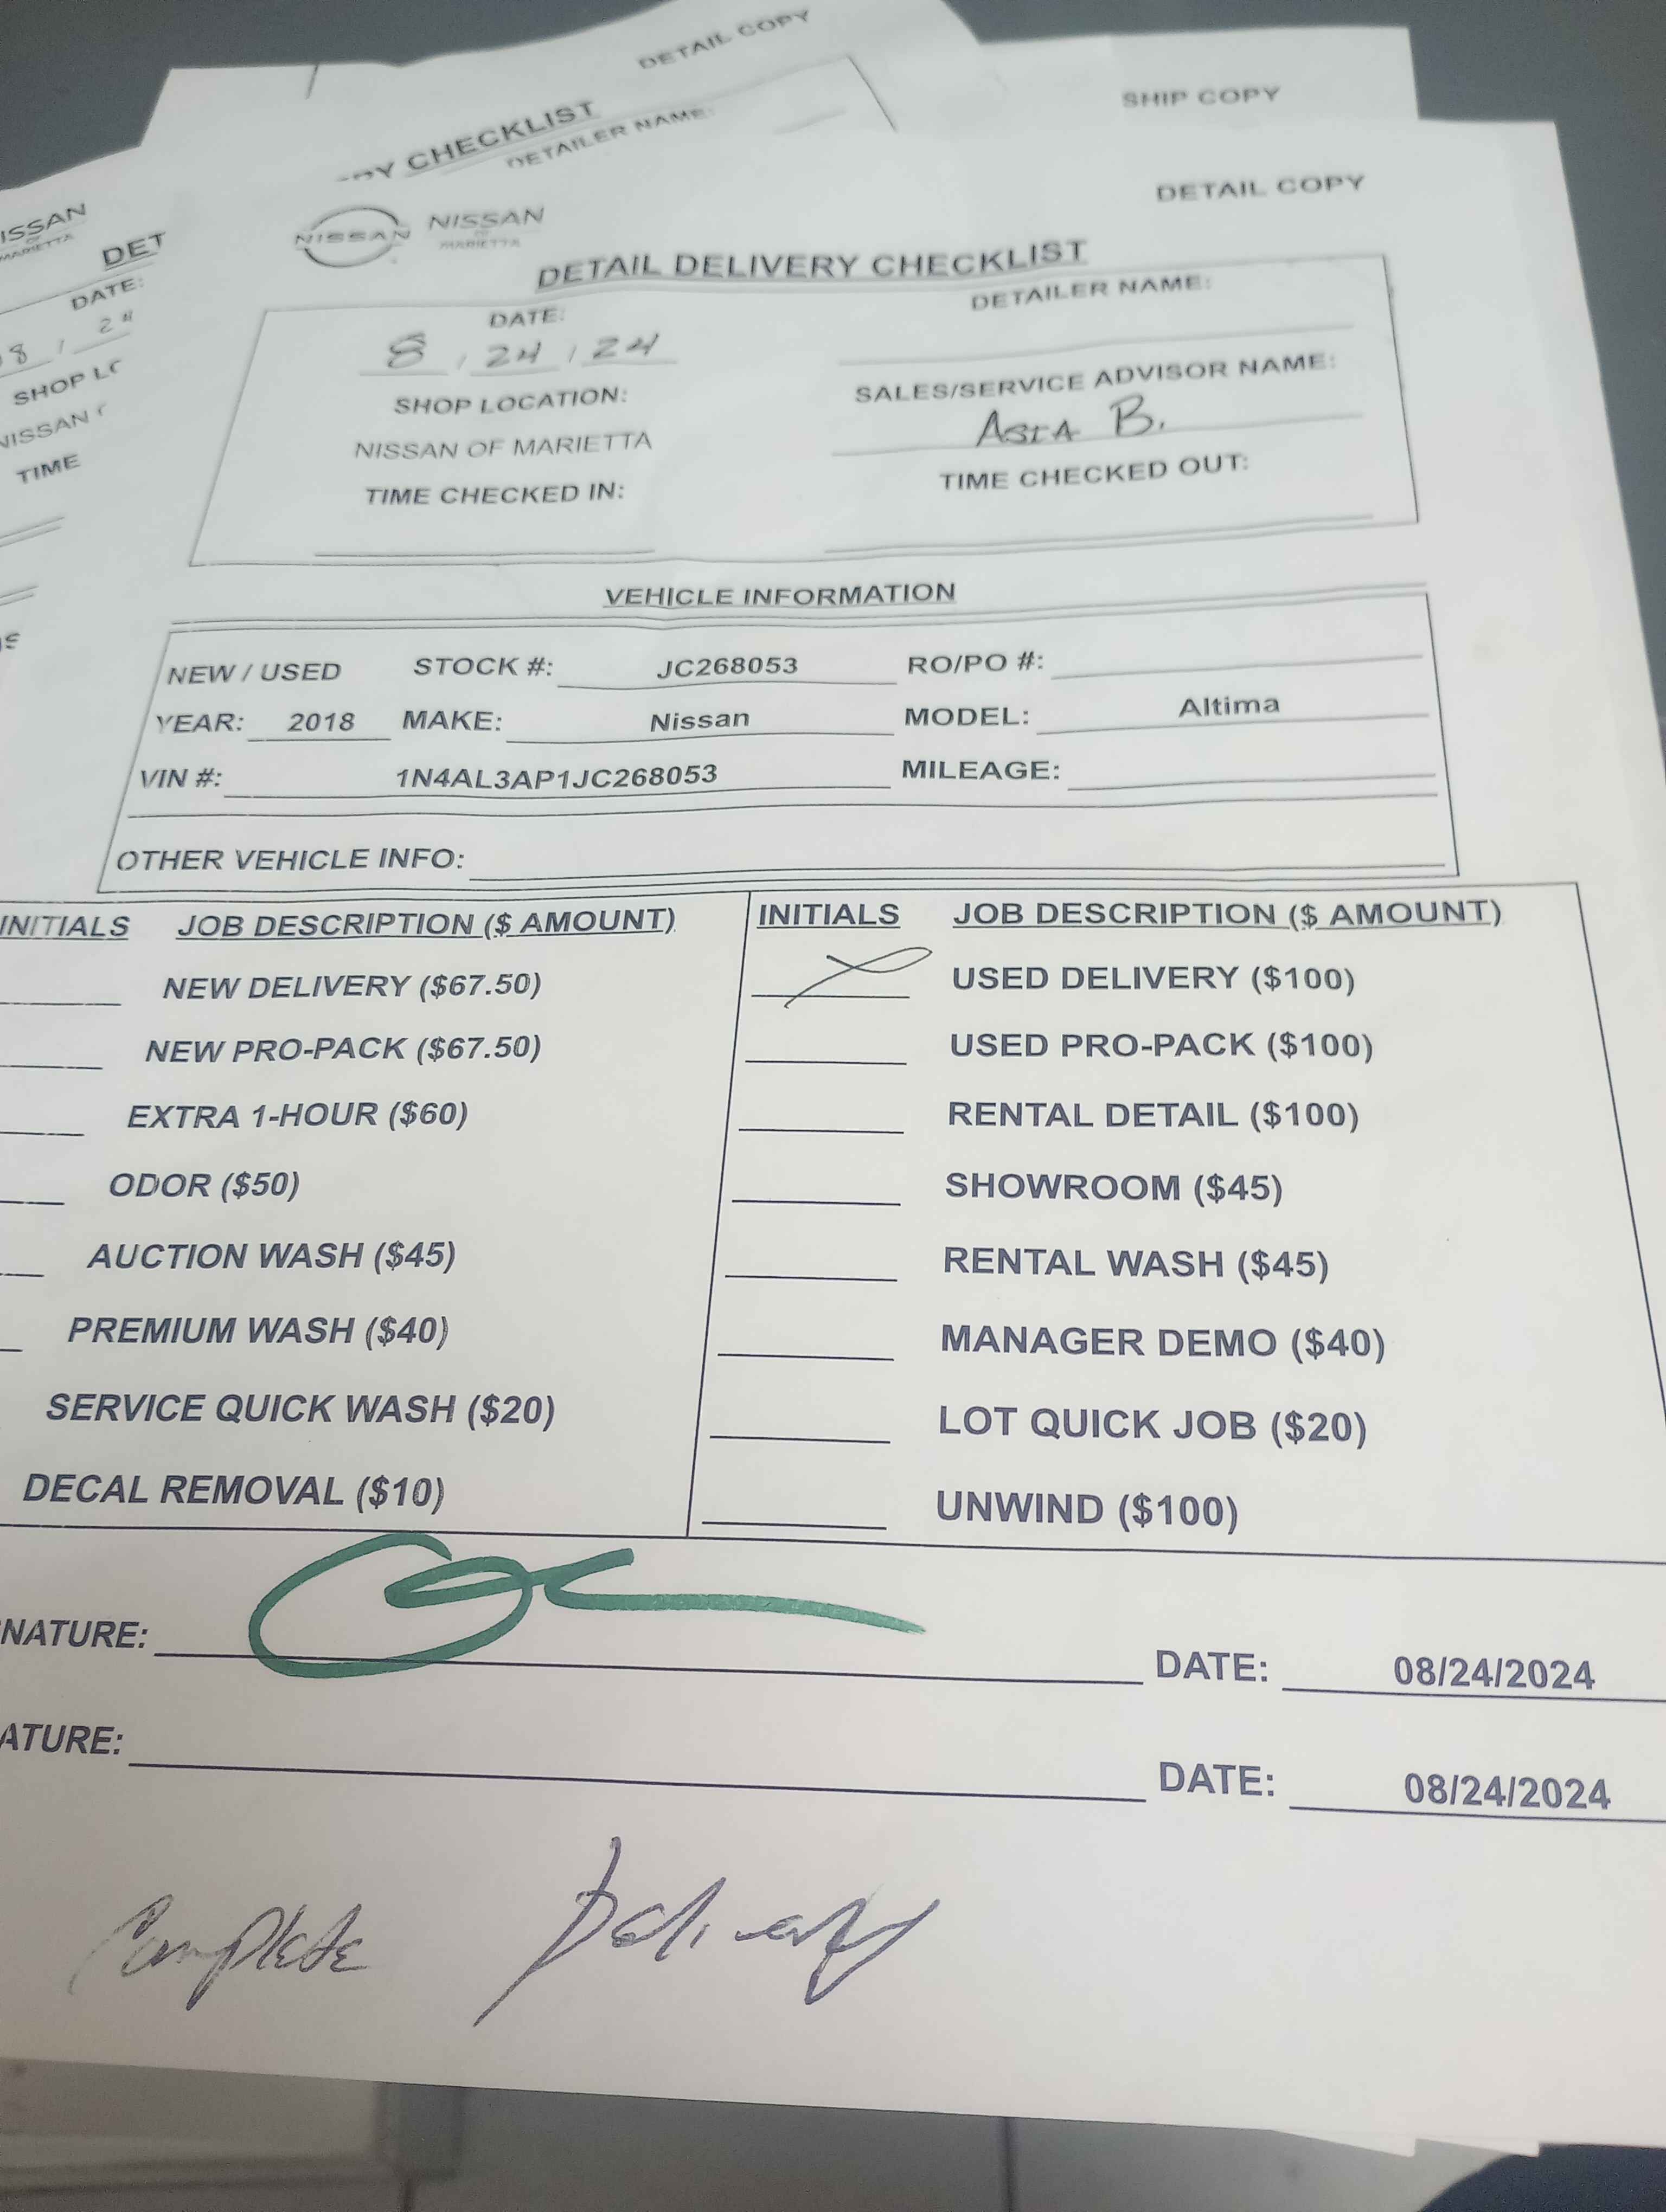 DETAIL COPY
SHIP COPY
CHECKLIST
DETAILER NAME:
DETAIL COPY
ISSAN
MARIETTA
DET
DATE:
8 / 24
SHOP
NISSAN
TIME
NISSAN NISSAN
OF
MARIETTA
DETAIL DELIVERY CHECKLIST
DATE: DETAILER NAME:
8 / 24 / 24
SHOP LOCATION: SALES/SERVICE ADVISOR NAME:
NISSAN OF MARIETTA AsIA B.
TIME CHECKED IN: TIME CHECKED OUT:
VEHICLE INFORMATION
NEW / USED STOCK #: JC268053 RO/PO #:
YEAR: 2018 MAKE: Nissan MODEL: Altima
VIN #: 1N4AL3AP1JC268053 MILEAGE:
OTHER VEHICLE INFO:
INITIALS JOB DESCRIPTION ($ AMOUNT) INITIALS JOB DESCRIPTION ($ AMOUNT)
NEW DELIVERY ($67.50) USED DELIVERY ($100)
NEW PRO-PACK ($67.50) USED PRO-PACK ($100)
EXTRA 1-HOUR ($60) RENTAL DETAIL ($100)
ODOR ($50) SHOWROOM ($45)
AUCTION WASH ($45) RENTAL WASH ($45)
PREMIUM WASH ($40) MANAGER DEMO ($40)
SERVICE QUICK WASH ($20) LOT QUICK JOB ($20)
DECAL REMOVAL ($10) UNWIND ($100)
NATURE: DATE: 08/24/2024
ATURE: DATE: 08/24/2024
Complete Delivery